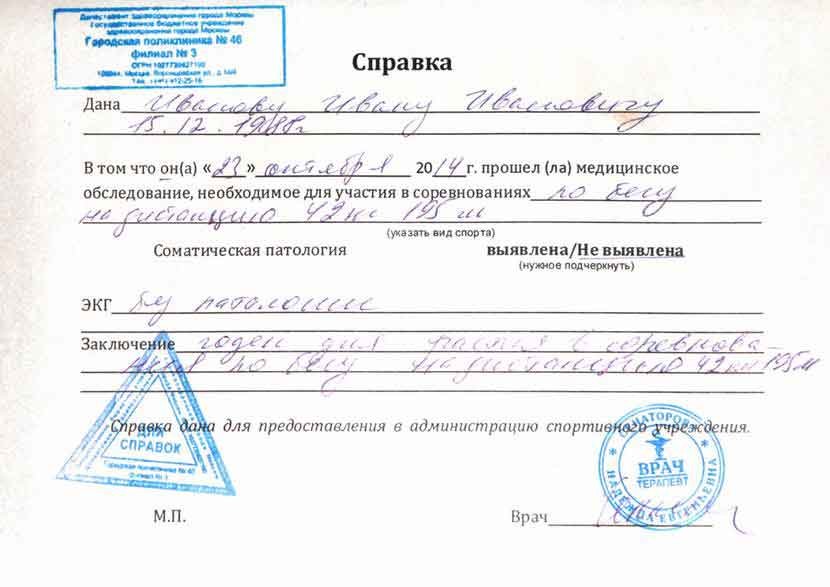 Департамент здравоохранения города Москвы
Государственное бюджетное учреждение
здравоохранения города Москвы
Городская поликлиника № 46
филиал № 3
Справка
Дана Иванову Ивану Ивановичу
15.12.1988г
В том что он(а) «23» октября 2014г. прошел (ла) медицинское
обследование, необходимое для участия в соревнованиях по бегу
на дистанцию 42 км 195 м
(указать вид спорта)
Соматическая патология выявлена/Не выявлена
(нужное подчеркнуть)
ЭКГ без патологии
Заключение годен для участия в соревнова-
ниях по бегу на дистанцию 42 км 195 м
Справка дана для предоставления в администрацию спортивного учреждения.
ДЛЯ
СПРАВОК
Городская поликлиника № 46
филиал № 3
ВРАЧ
ТЕРАПЕВТ
НАДЕЖДА ЕВГЕНЬЕВНА
М.П. Врач